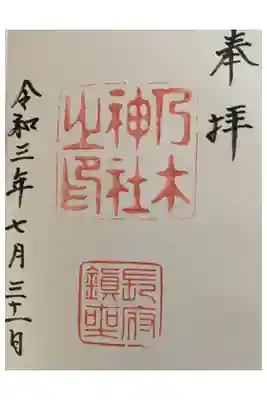 奉拝
乃木
神社
之印
長府
鎮座
令和三年七月三十一日